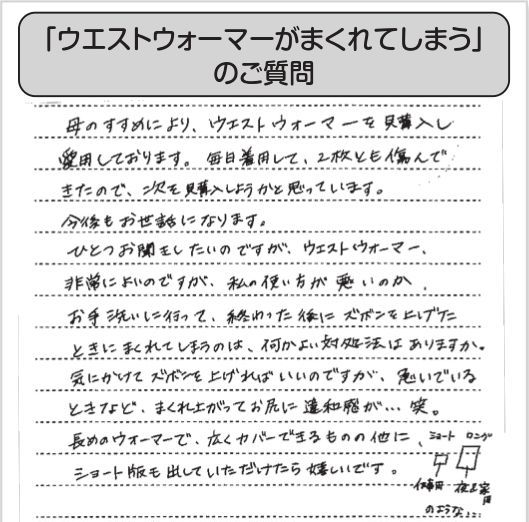 「ウエストウォーマーがまくれてしまう」
のご質問
母のすすめにより、ウエストウォーマーを購入し
愛用しております。毎日着用して、2枚とも傷んで
きたので、次を購入しようかと思っています。
今後もお世話になります。
ひとつお聞きしたいのですが、ウエストウォーマー、
非常によいのですが、私の使い方が悪いのか、
お手洗いに行って、終わった後にズボンを上げた
ときにまくれてしまうのは、何かよい対処法はありますか。
気にかけてズボンを上げればいいのですが、急いでいる
ときなど、まくれ上がってお尻に違和感が…笑。
長めのウォーマーで、広くカバーできるものの他に、
ショート版も出していただけたら嬉しいです。
ショート ロング
仕事用
夜&家用
のような…